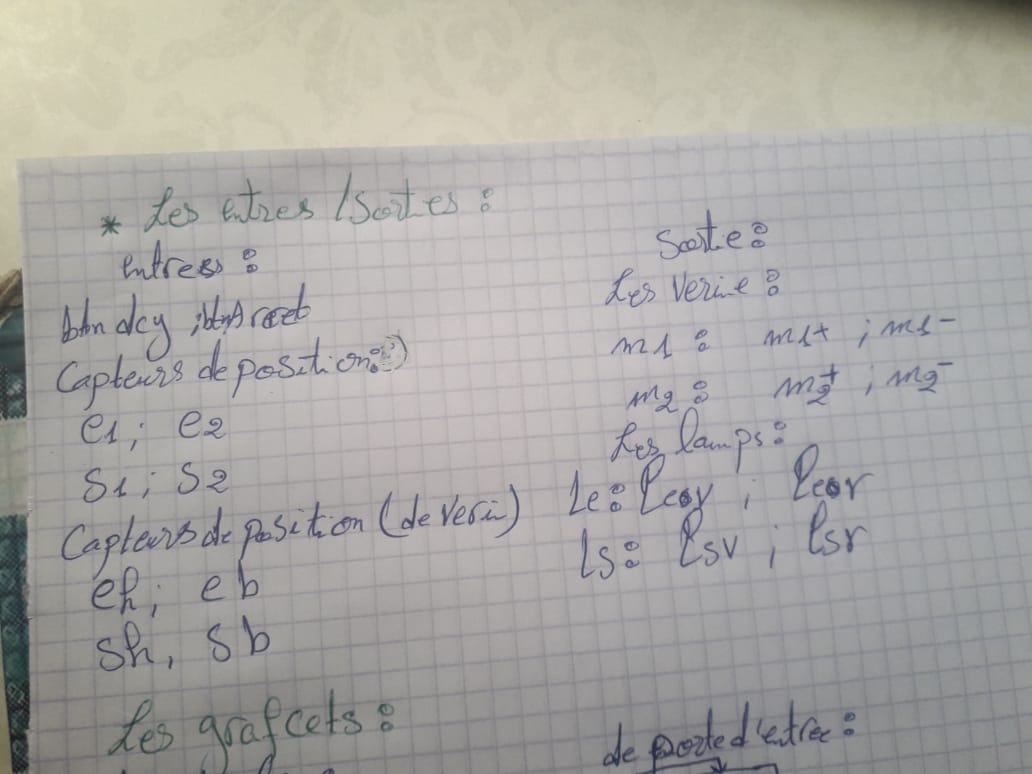 * Les entres / Sorties :
entress :
btn dcy ; btn Arret
Capteurs de position :
e1 ; e2
S1 ; S2
Capteurs de position (de verin)
eh ; eb
sh, sb
Sortie :
Les verine :
m1 : m1+ ; m1-
m2 : m2+ ; m2-
Les lamps :
le : lev ; ler
ls : lsv ; lsr
Les grafcets :
de porte d'entree :